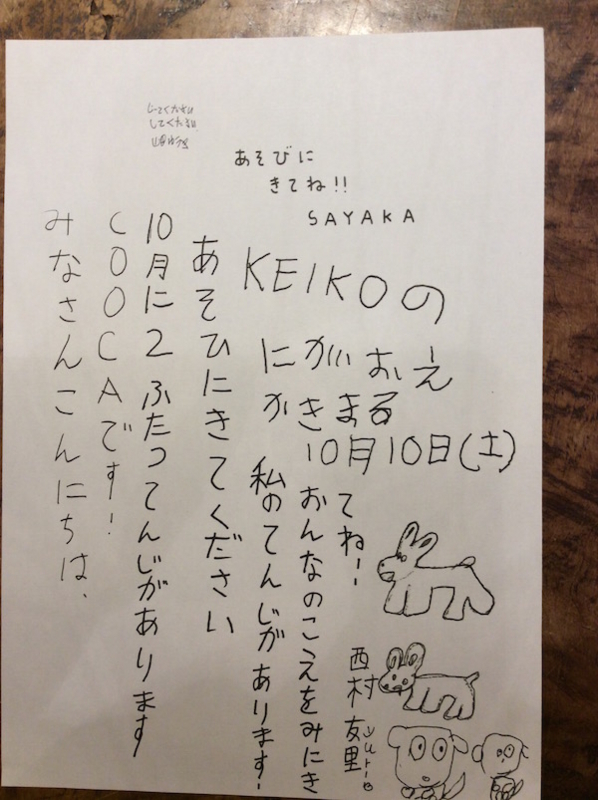 あそびに
きてね!!
SAYAKA
みなさんこんにちは、
COOCAです!
10月に2ふたつてんじがあります
あそひにきてください
KEIKOの
にがおえ
かきまる
10月10日(土)
私のてんじがあります!
おんなのこえをみにき
てね!
西村友里